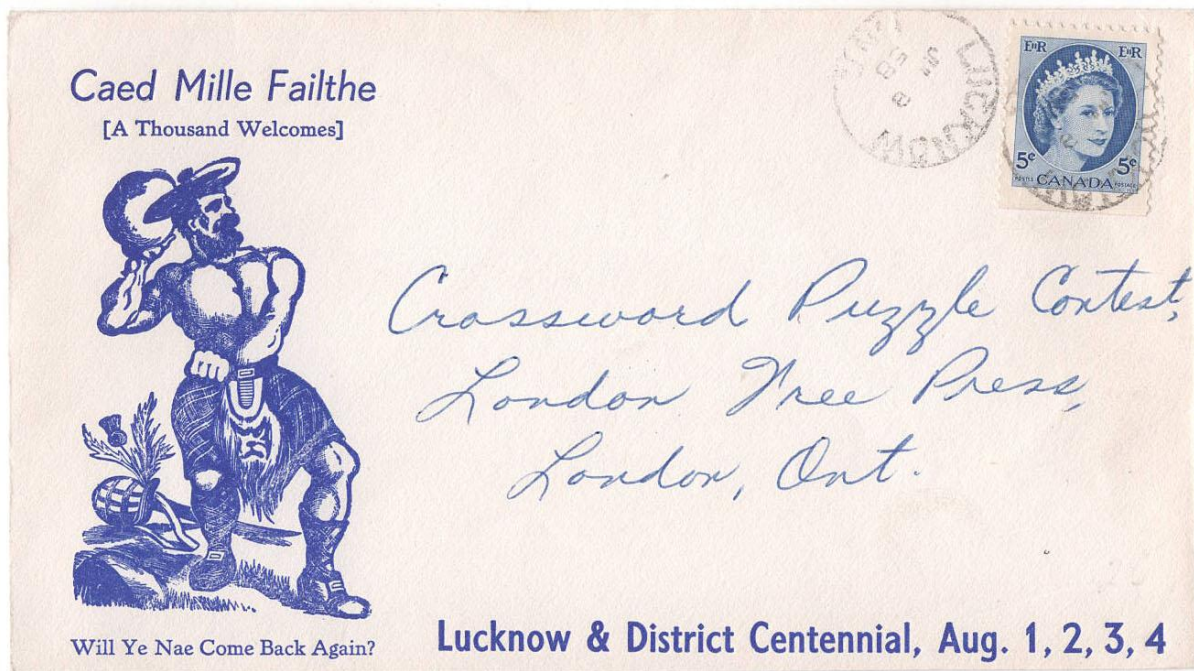 Caed Mille Failthe
[A Thousand Welcomes]
LUCKNOW
EIIR EIIR
5¢ 5¢
POSTES CANADA POSTAGE
Crossword Puzzle Contest,
London Free Press,
London, Ont.
Will Ye Nae Come Back Again?
Lucknow & District Centennial, Aug. 1, 2, 3, 4